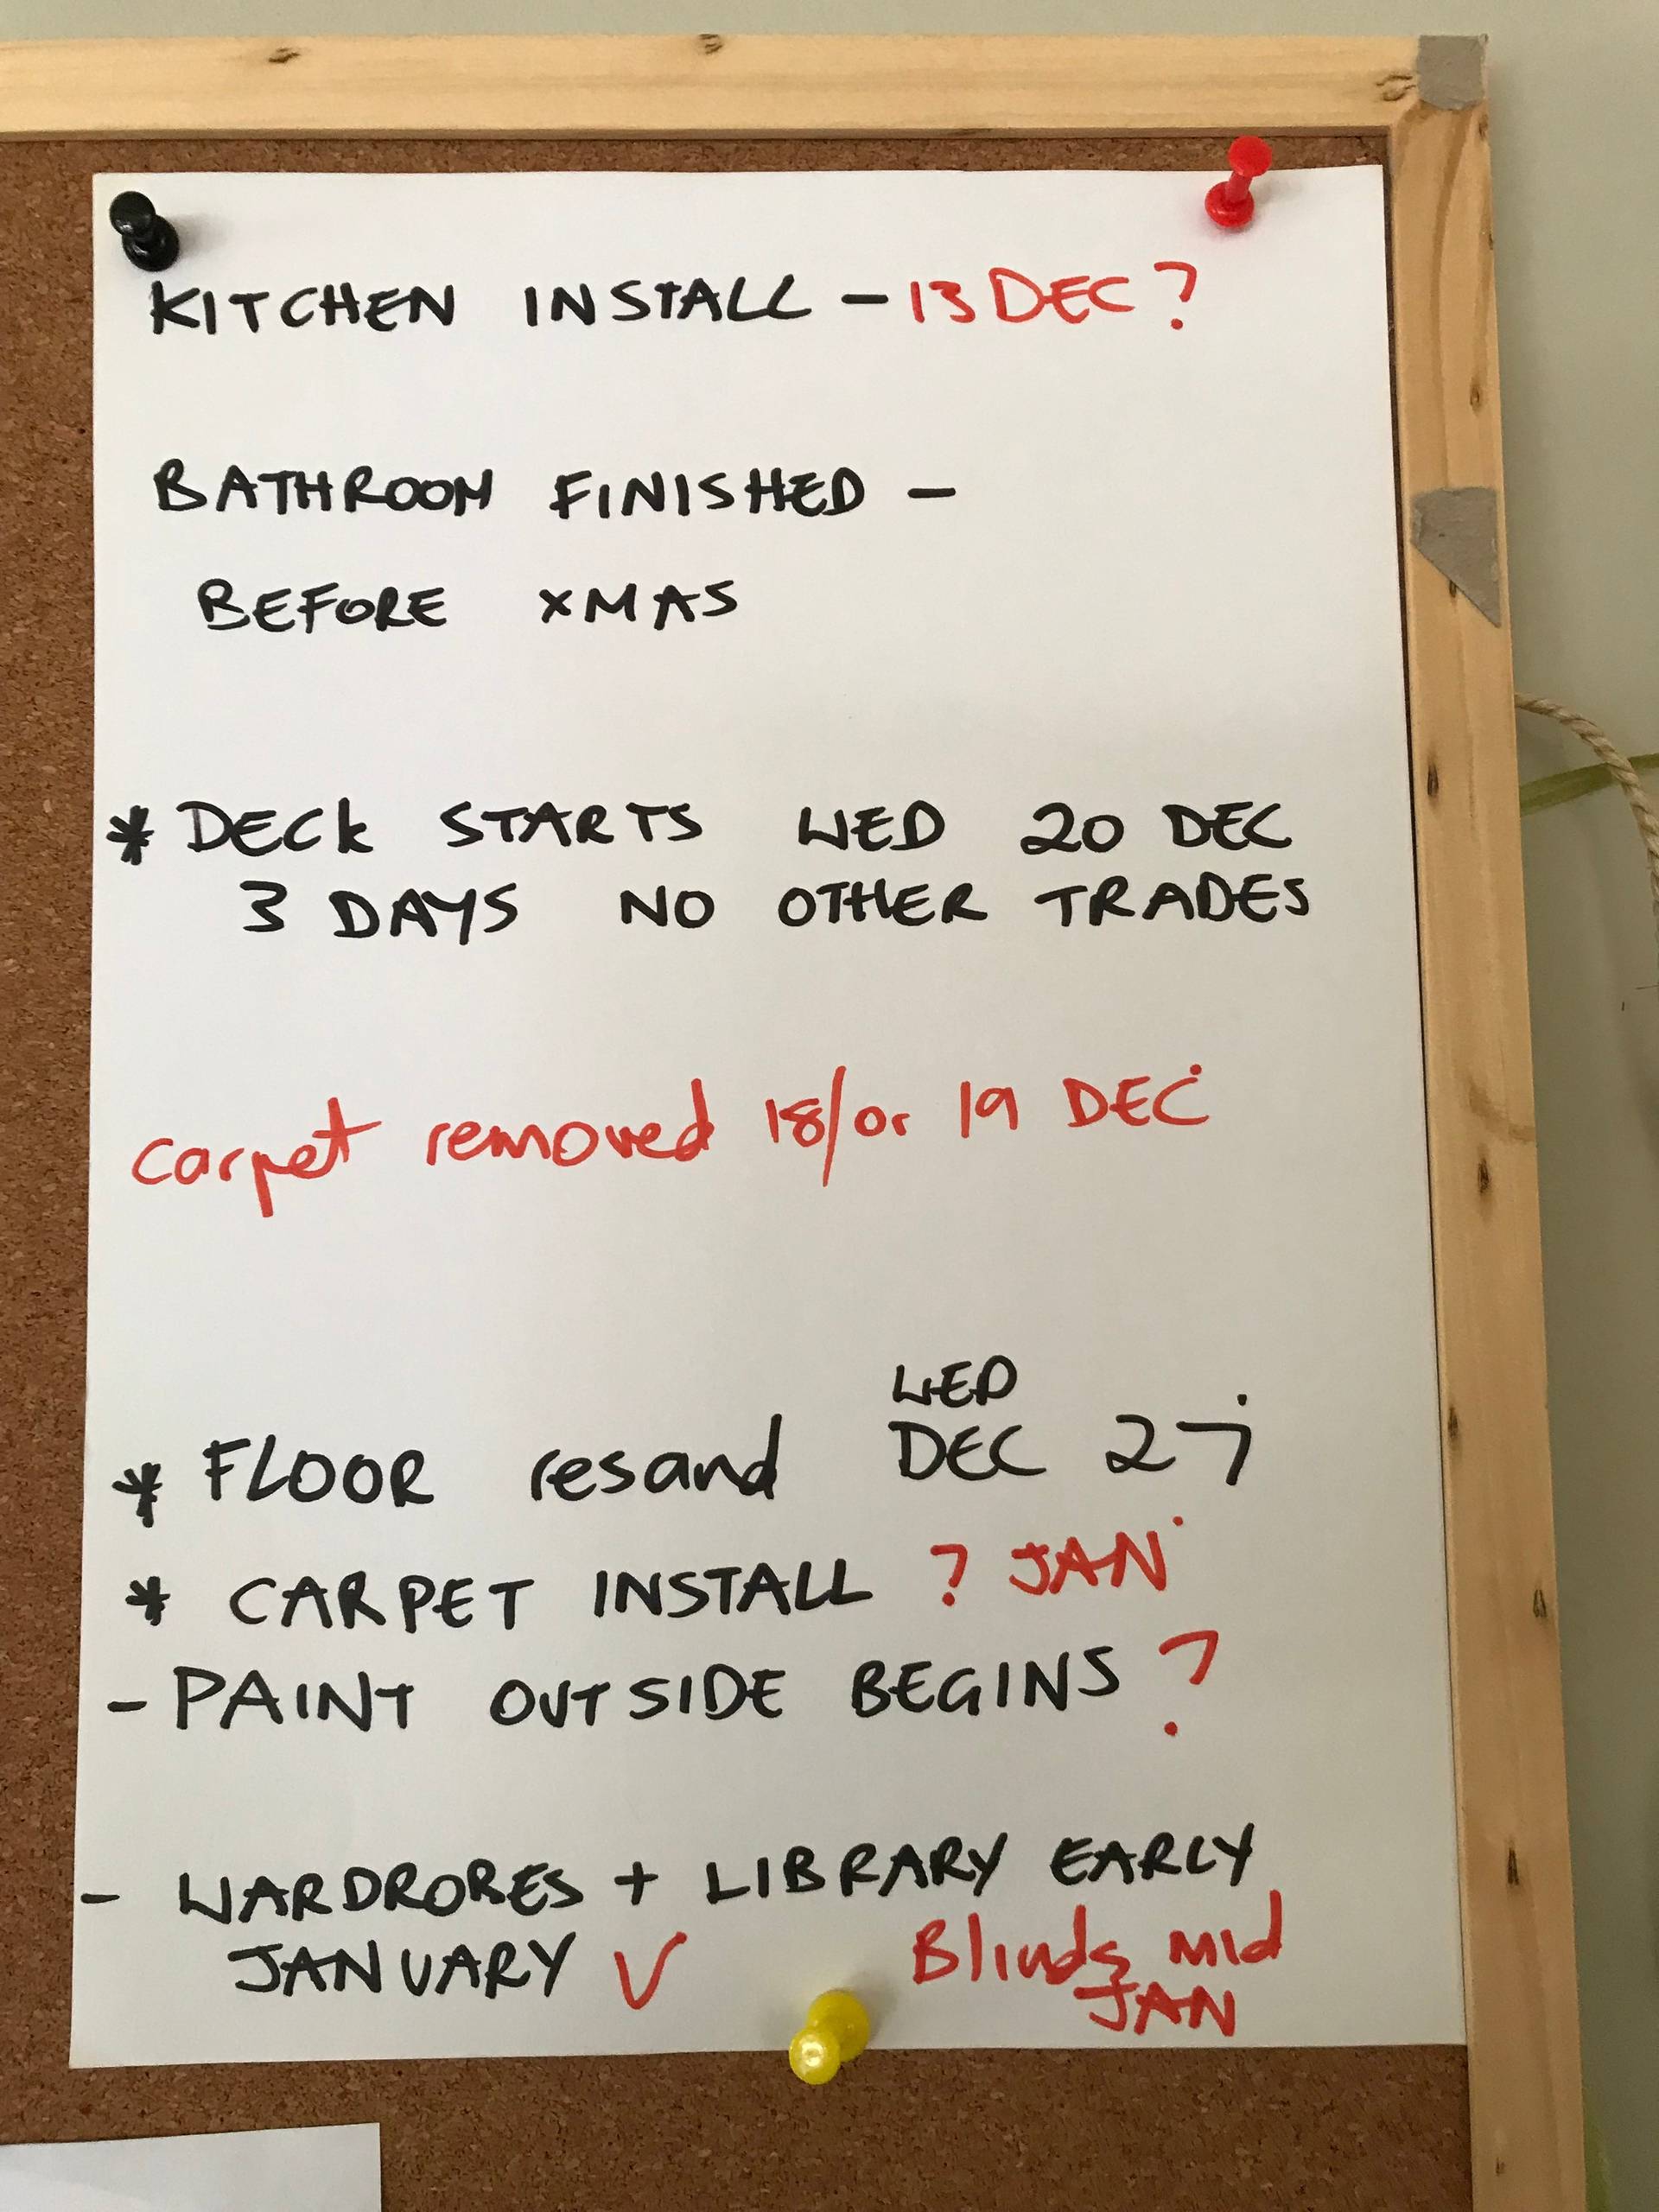 KITCHEN INSTALL - 13 DEC ?
BATHROOM FINISHED -
BEFORE XMAS
* DECK STARTS WED 20 DEC
3 DAYS NO OTHER TRADES
Carpet removed 18/or 19 DEC
WED
* FLOOR resand DEC 27
* CARPET INSTALL ? JAN
- PAINT OUTSIDE BEGINS ?
- WARDROBES + LIBRARY EARLY
JANUARY ✓ Blinds mid
JAN